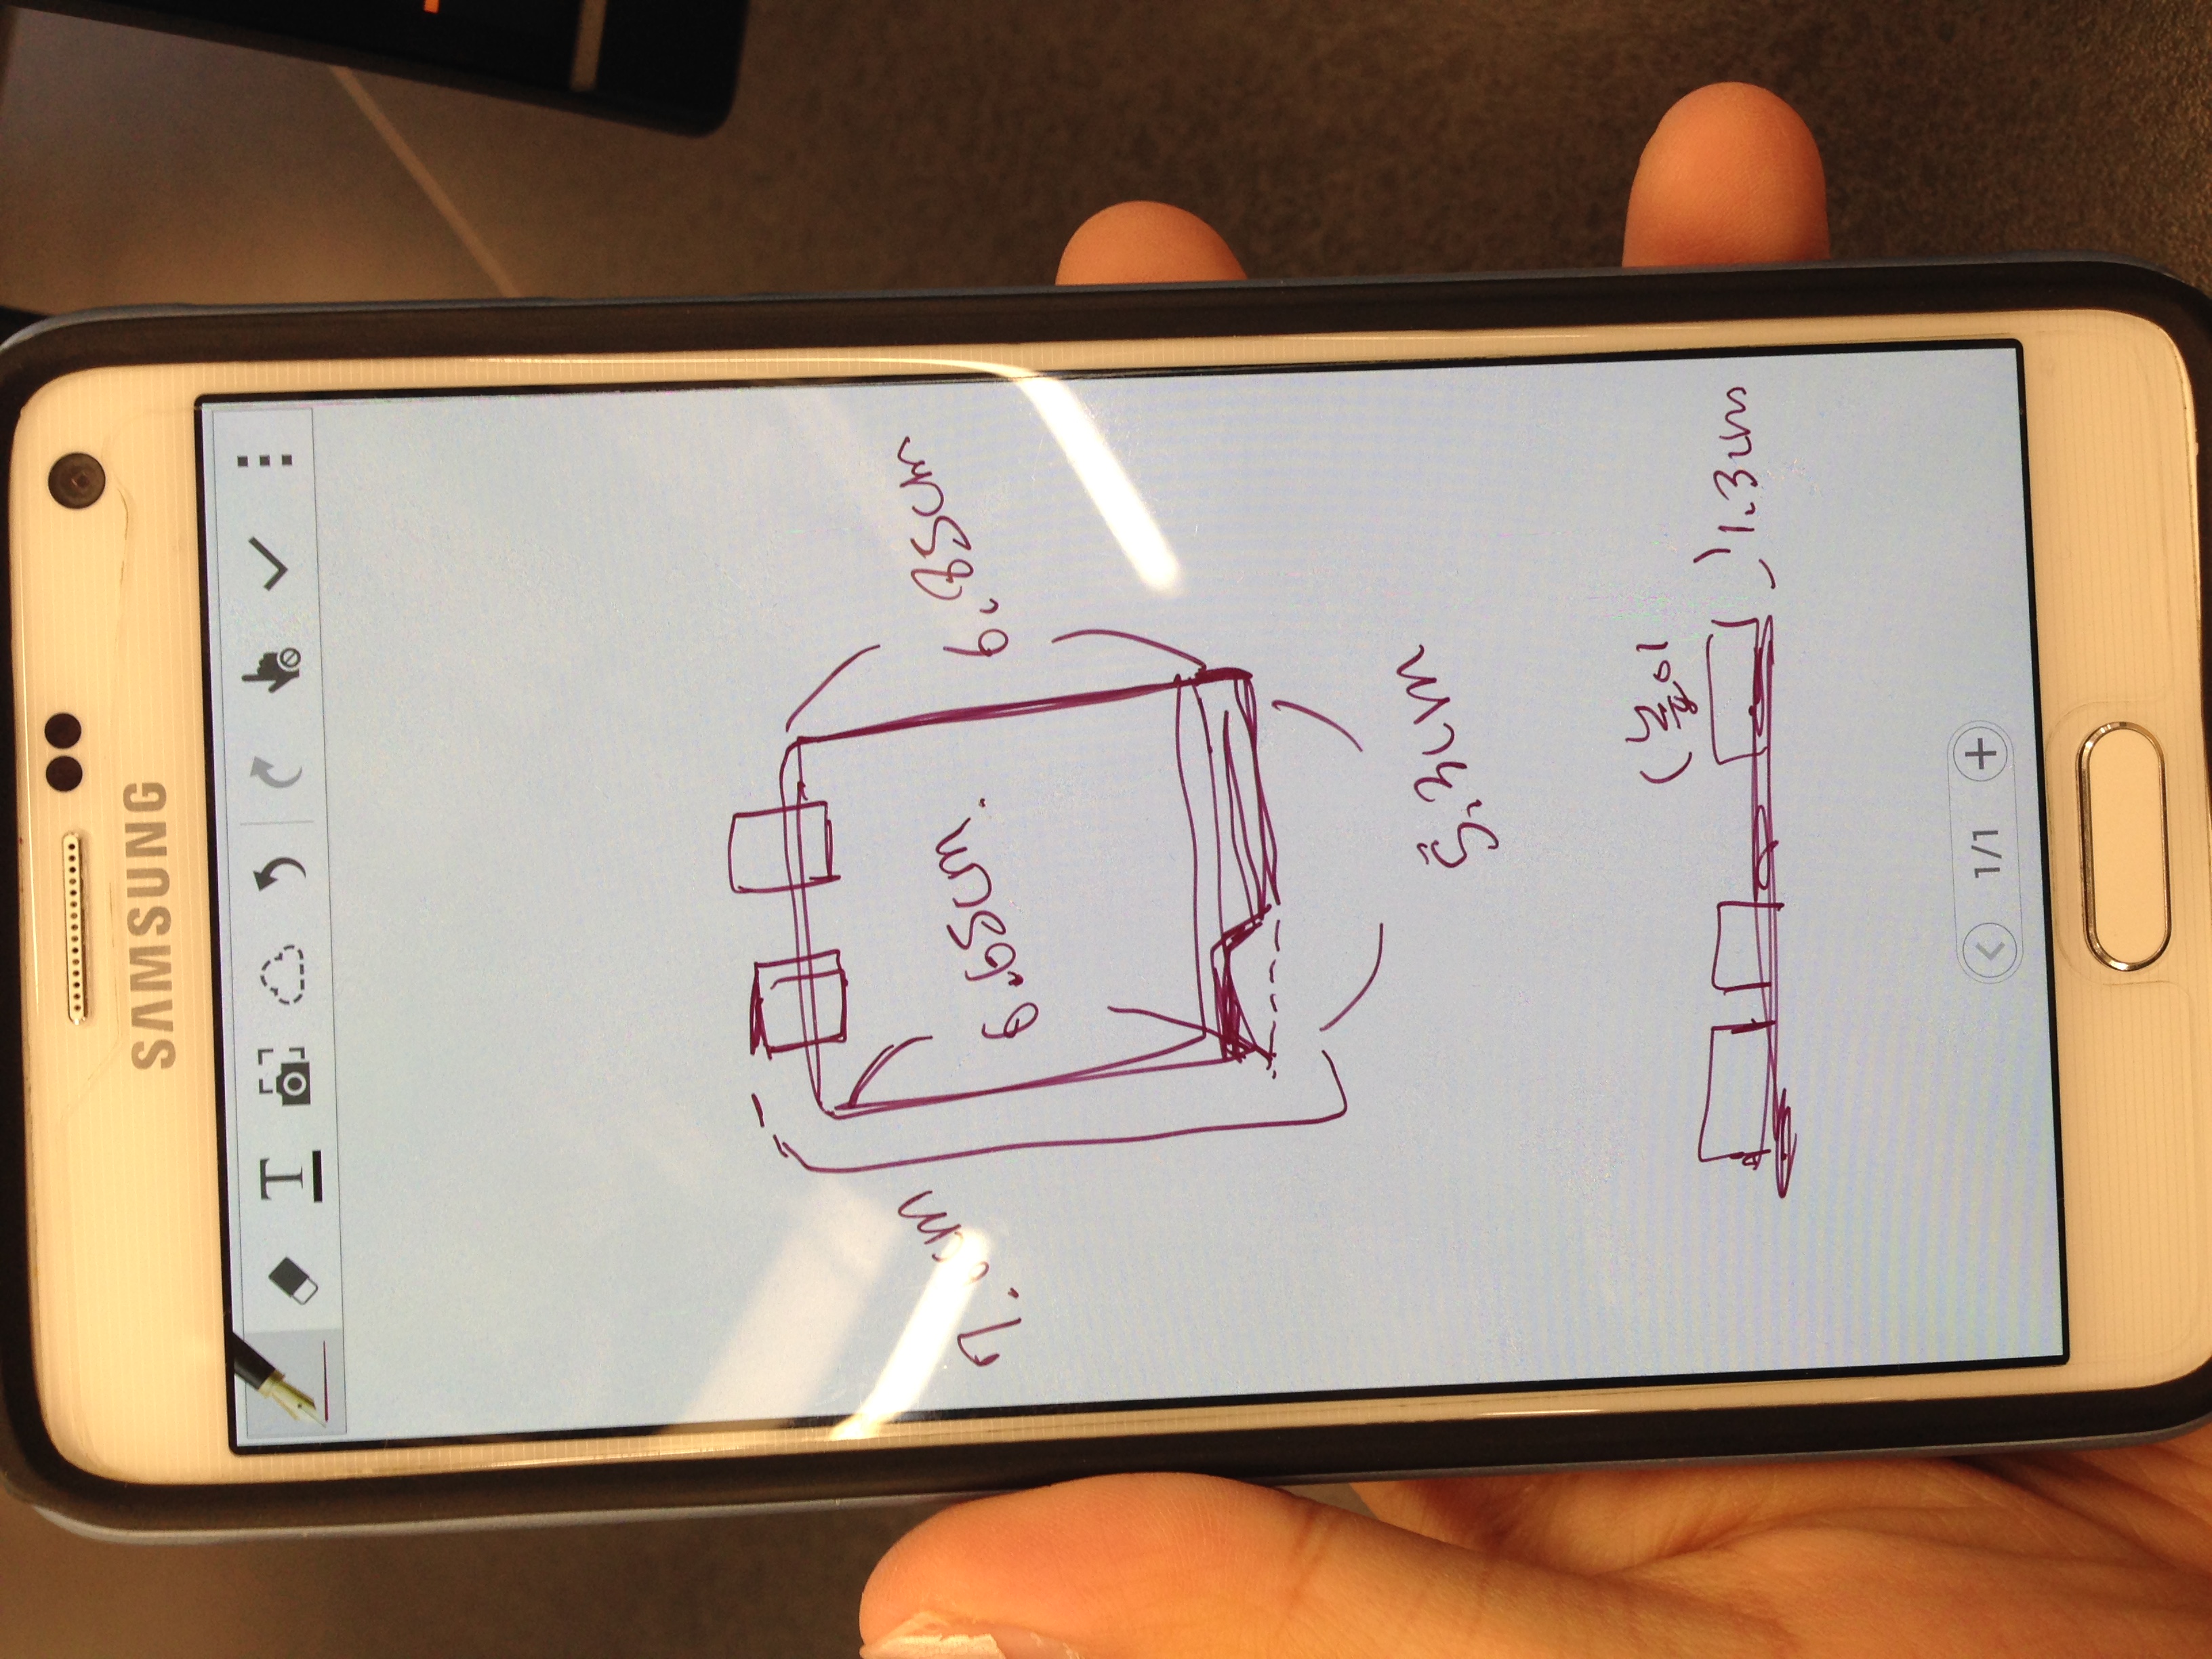 SAMSUNG
T
6.65cm.
6.85cm
5.3cm
(높이
1.3cm
1/1